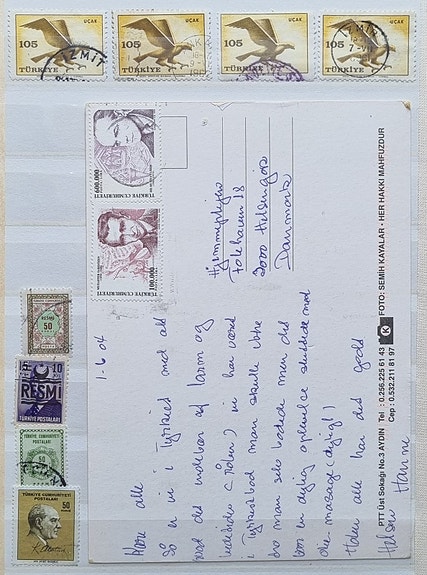 105 UÇAK
TÜRKİYE
105 UÇAK
TÜRKİYE
105 UÇAK
TÜRKİYE
105 UÇAK
TÜRKİYE
İZMİT
İZMİT
600.000
TÜRKİYE CUMHURİYETİ
100.000
TÜRKİYE CUMHURİYETİ
Hjemmeplejen
18
3000 Helsingør
Danmark
1-6 04
Kære alle
Så er vi i Tyrkiet med alt
hvad det indebær af larm og
i har været
i Tyrkisk bad man skulle
man selv badede men det
var en dejlig oplevelse sluttede med
massage (dejligt)
Håber alle har det godt
Hilsen Hanne
PTT Üst Sokağı No.3 AYDIN Tel : 0.256.225 61 43 K FOTO: SEMİH KAYALAR - HER HAKKI MAHFUZDUR
Cep : 0.532.211 81 97
RESMİ
50
10
RESMİ
TÜRKİYE POSTALARI
50
TÜRKİYE CUMHURİYETİ
POSTALARI
50